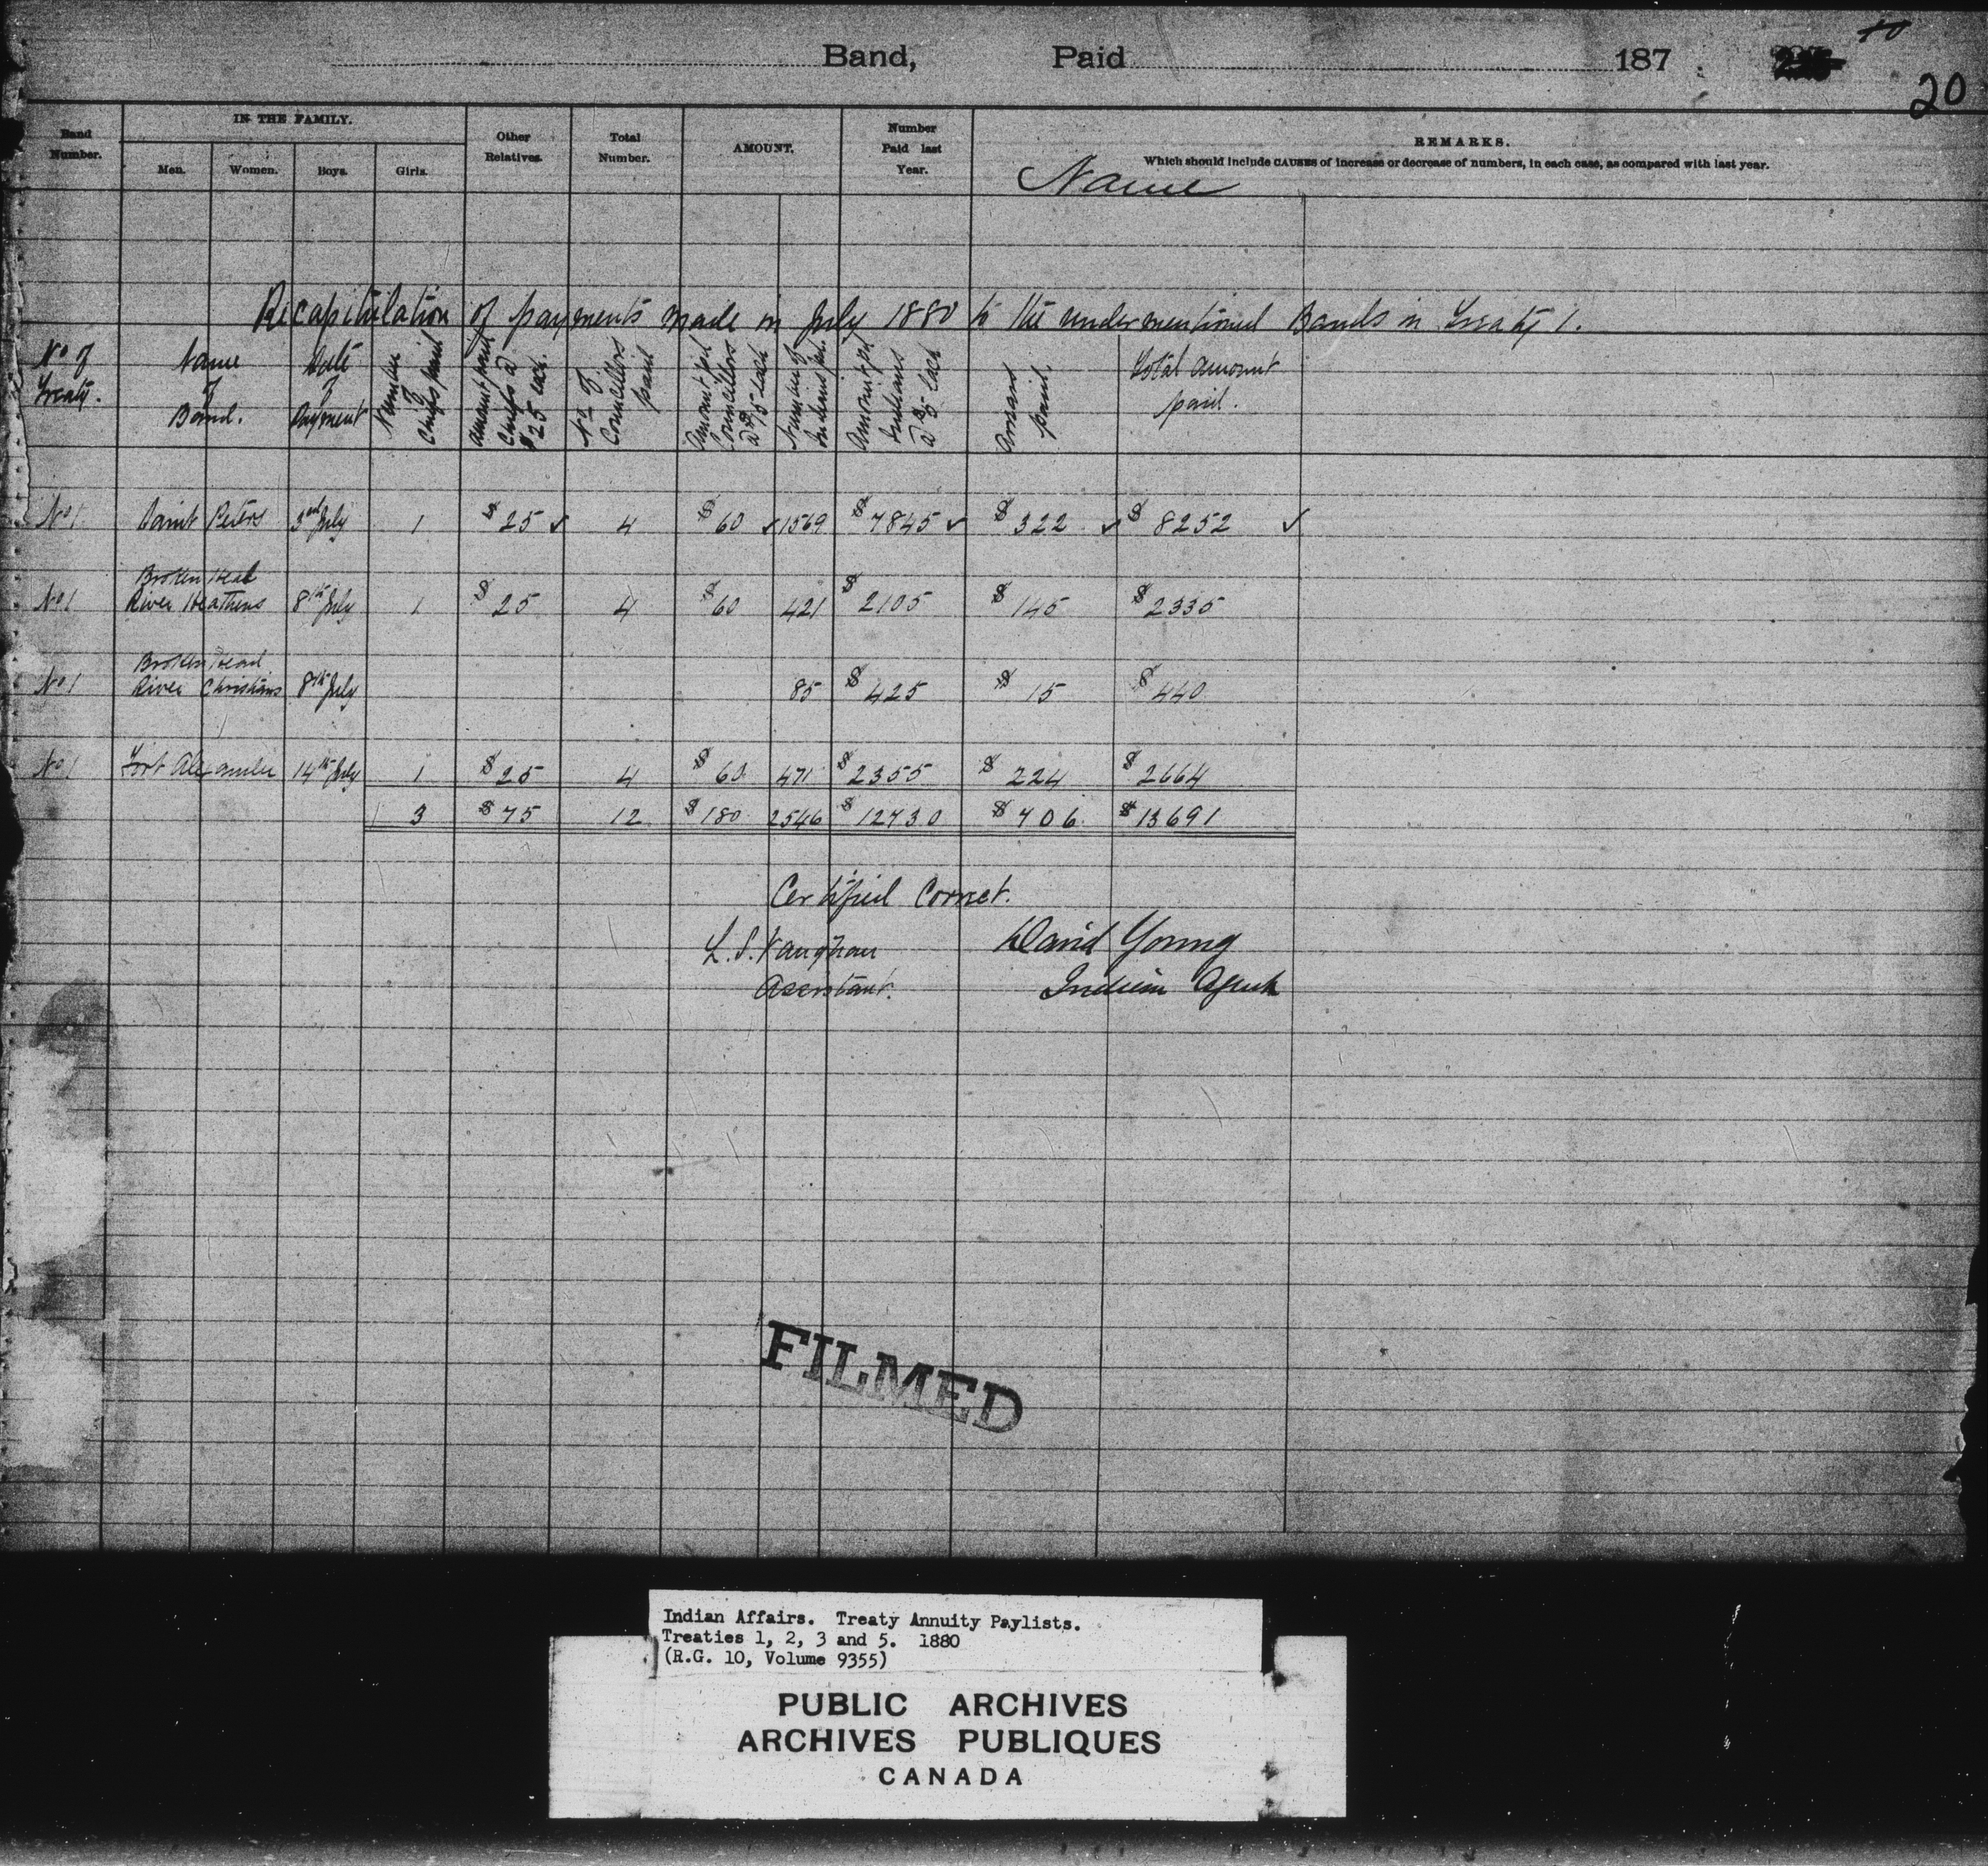 Band, Paid 187
20
Band Number. IN THE FAMILY. Men. Women. Boys. Girls. Other Relatives. Total Number. AMOUNT. Number Paid last Year. Name REMARKS.
Which should include CAUSES of increase or decrease of numbers, in each case, as compared with last year.
Recapitulation of payments made in July 1880 to the undermentioned Bands in Treaty 1.
No of Treaty. Name of Band. Date of Payment Number of Chiefs paid Amount paid Chiefs @ $25 each. No of Councillors paid Amount pd Councillors @ $15 each Number of Indians pd. Amount pd Indians @ $5 each Arrears paid. Total amount paid.
No 1 Saint Peters 3rd July 1 $25 ✓ 4 $60 ✓ 1569 $7845 ✓ $322 ✓ $8252 ✓
No 1 Broken Head River Heathens 8th July 1 $25 4 $60 421 $2105 $145 $2335
No 1 Broken Head River Christians 8th July 85 $425 $15 $440
No 1 Fort Alexander 14th July 1 $25 4 $60 471 $2355 $224 $2664
3 $75 12 $180 2546 $12730 $706 $13691
Certified Correct.
L. S. Vaughan David Young
Assistant. Indian Agent
FILMED
Indian Affairs. Treaty Annuity Paylists.
Treaties 1, 2, 3 and 5. 1880
(R.G. 10, Volume 9355)
PUBLIC ARCHIVES
ARCHIVES PUBLIQUES
CANADA